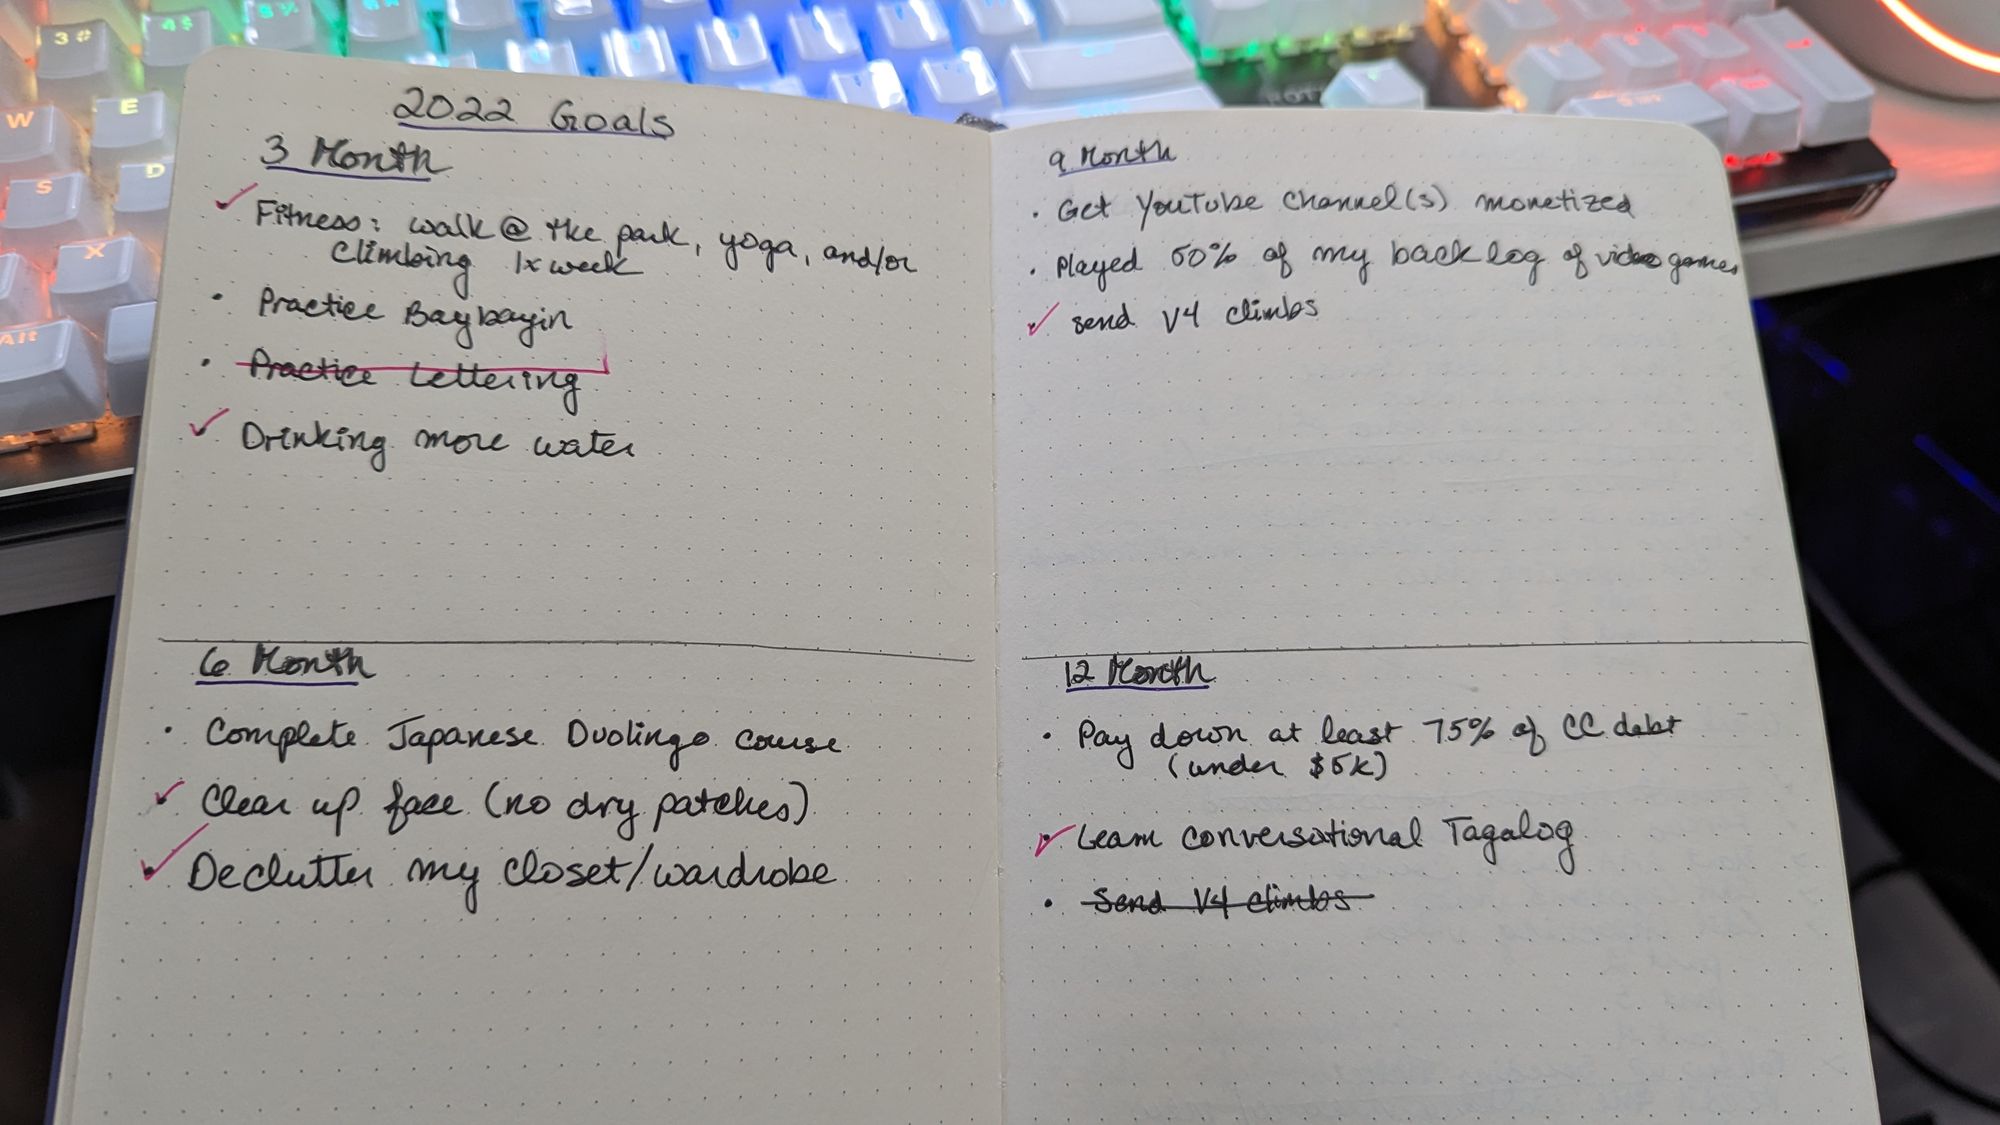 2022 Goals
3 Month
Fitness: walk @ the park, yoga, and/or
climbing 1x week
• Practice Baybayin
• Practice Lettering
Drinking more water
6 Month
• Complete Japanese Duolingo course
Clear up face (no dry patches)
Declutter my closet/wardrobe
9 Month
• Get YouTube Channel(s) monetized
• Played 50% of my backlog of video games
send V4 climbs
12 Month
• Pay down at least 75% of CC debt
(under $5k)
• Learn conversational Tagalog
• Send V4 climbs
3 #
4 $
5 %
W
E
S
D
X
Alt